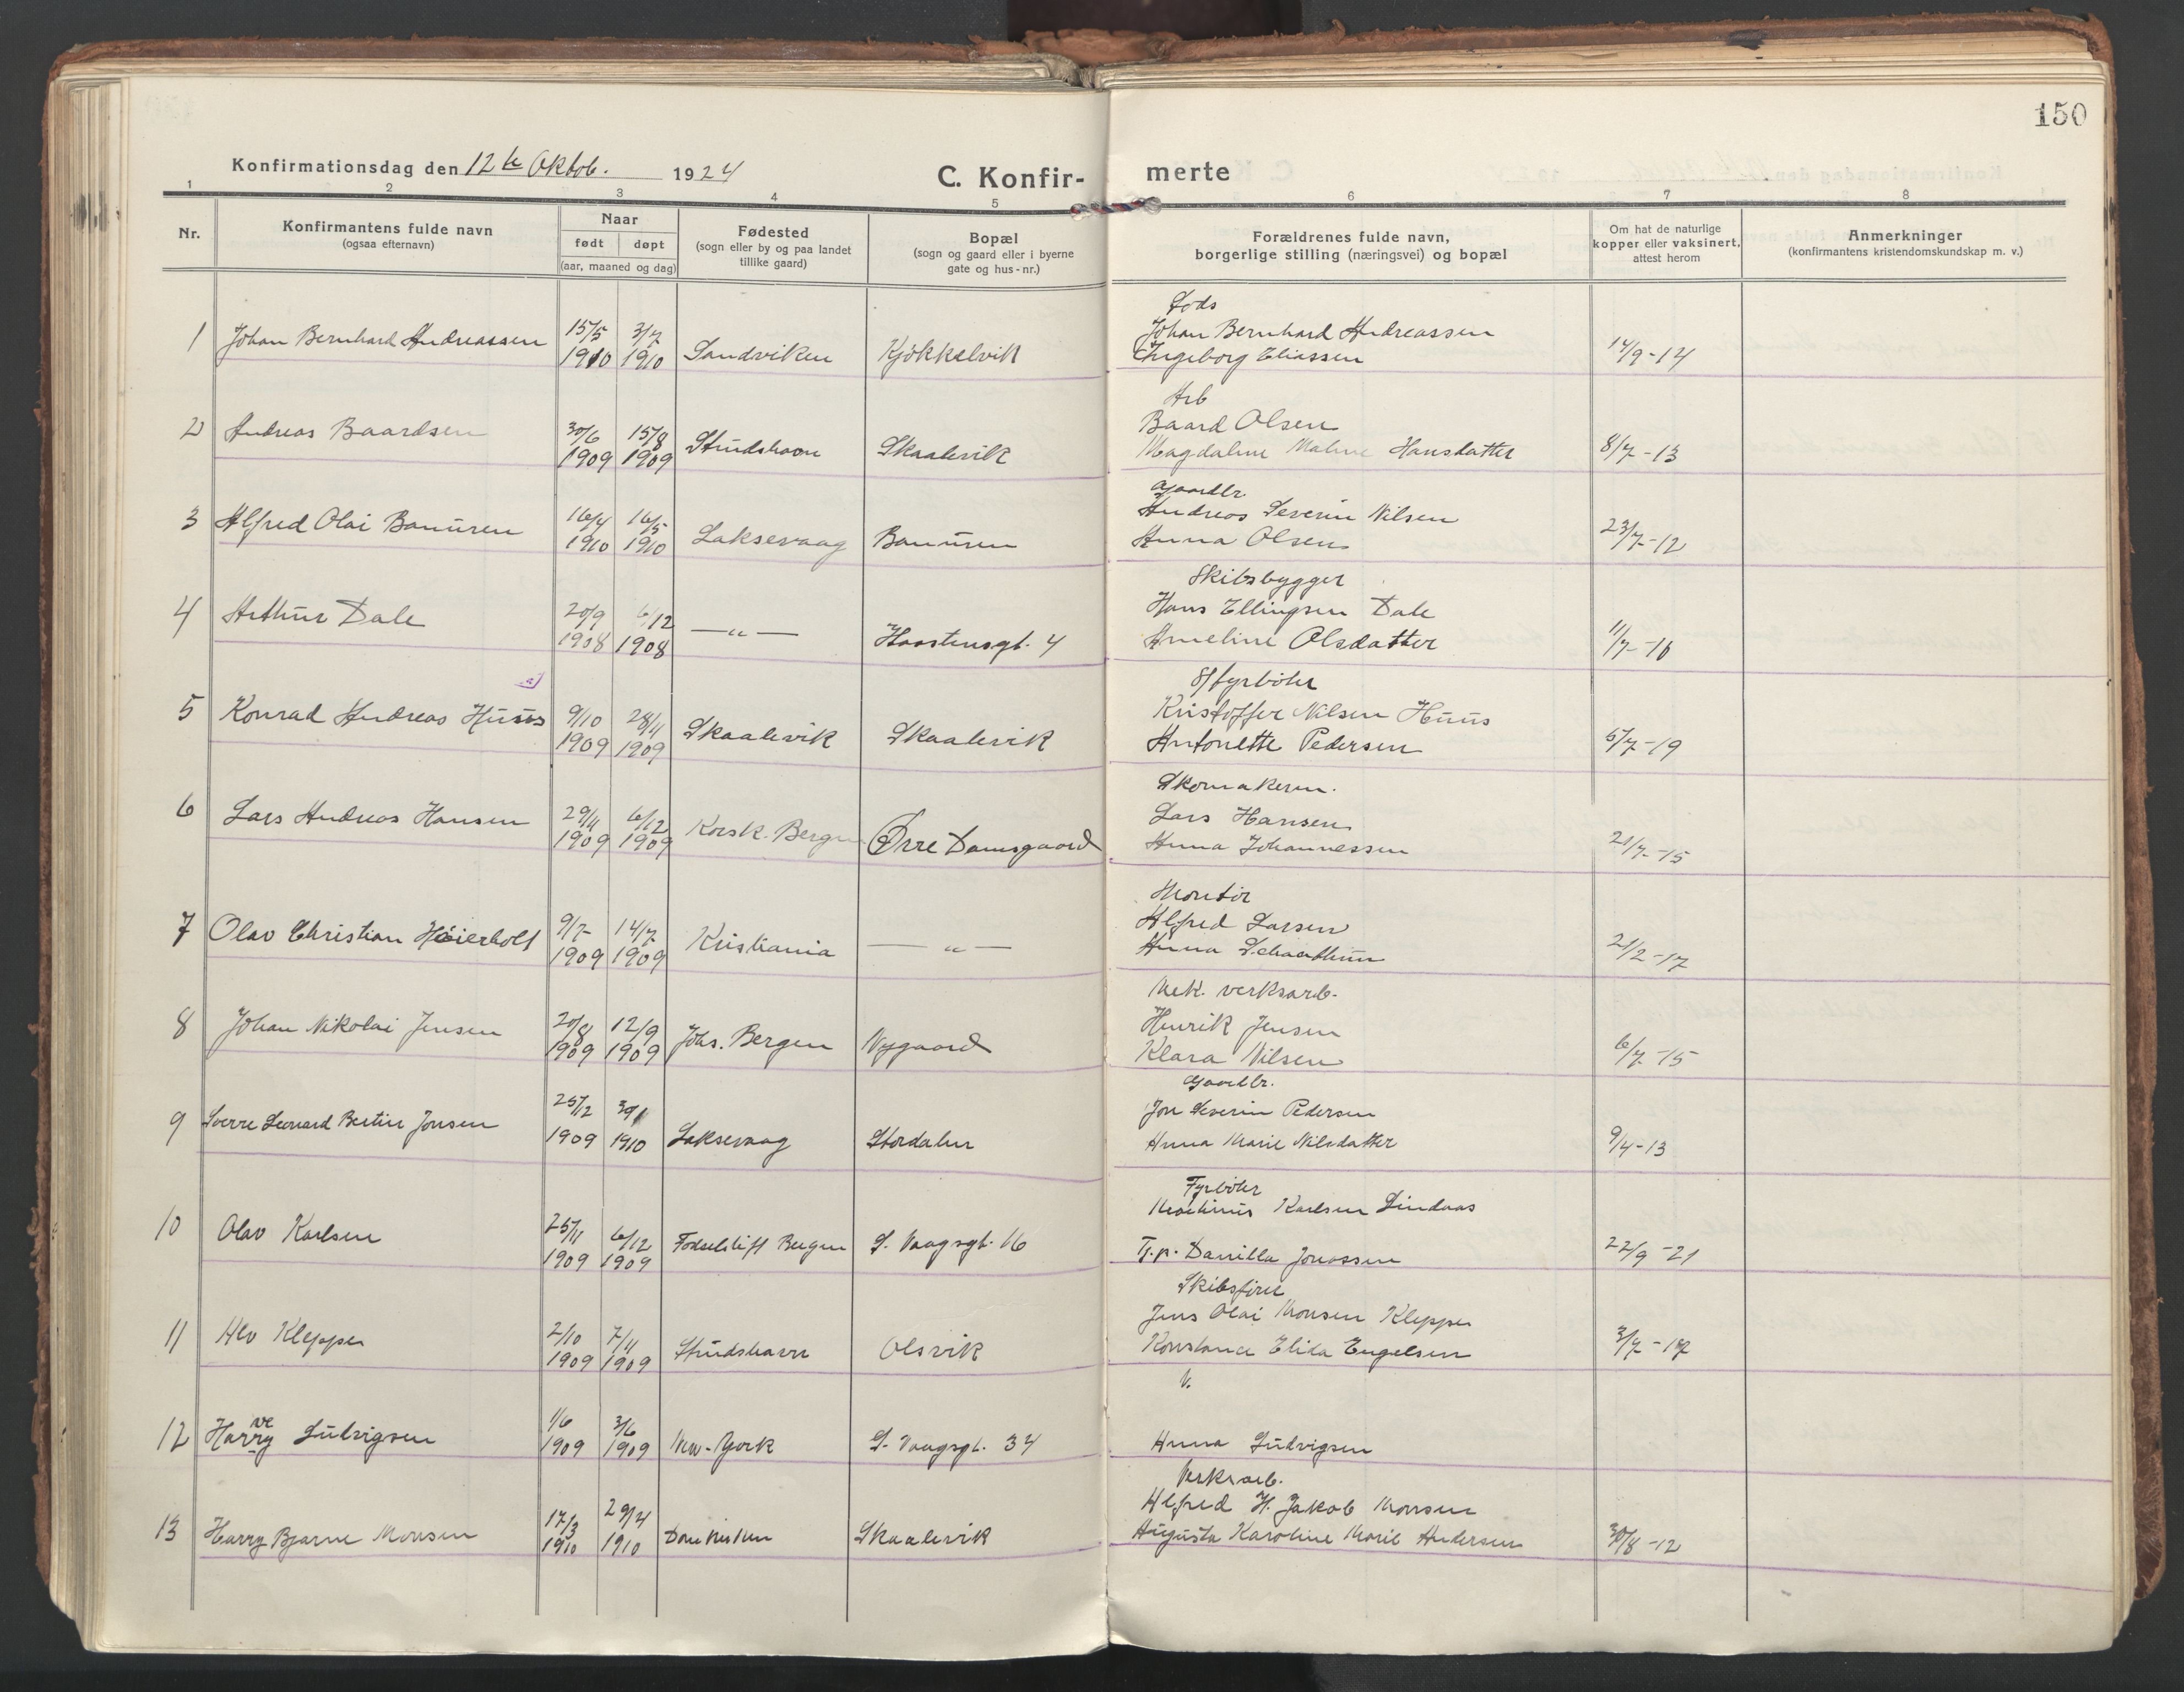 150
Konfirmationsdag den 12te Oktob. 1924
C. Konfir- merte
1 2 3 4 5 6 7 8
Nr.
Konfirmantens fulde navn
(ogsaa efternavn)
Naar
født døpt
(aar, maaned og dag)
Fødested
(sogn eller by og paa landet
tillike gaard)
Bopæl
(sogn og gaard eller i byerne
gate og hus-nr.)
Forældrenes fulde navn,
borgerlige stilling (næringsvei) og bopæl
Om hat de naturlige
kopper eller vaksinert,
attest herom
Anmerkninger
(konfirmantens kristendomskundskap m. v.)
Lods
1 Johan Bernhard Andreassen 15/5 3/7 Johan Bernhard Andreassen
1910 1910 Sandviken Kjökkelvik Ingeborg Eliassen 14/9-14
Arb
2 Andreas Baardsen 30/6 15/8 Baard Olsen
1909 1909 Strudshavn Skaalevik Magdalene Malene Hansdatter 8/7-13
Gaardbr.
3 Alfred Olai Banuren 16/4 16/5 Andreas Severin Nilsen
1910 1910 Laksevaag Banuren Anna Olsen 23/7-12
Skibsbygger
4 Arthur Dale 20/9 6/12 Hans Ellingsen Dale
1908 1908 —"— Haastensgt. 4 Ameline Olsdatter 11/7-16
S/fyrböter
5 Konrad Andreas Huus 9/10 28/11 Kristoffer Nilsen Huus
1909 1909 Skaalevik Skaalevik Antonette Pedersen 5/7-19
Skomakerm.
6 Lars Andreas Hansen 29/11 6/12 Lars Hansen
1909 1909 Korsk. Bergen Övre Damsgaard Anna Johannessen 21/7-15
Montör
7 Olav Christian Höierholt 9/7 14/7 Alfred Larsen
1909 1909 Kristiania —"— Anna 21/2-17
Mek. verksarb.
8 Johan Nikolai Jensen 20/8 12/9 Henrik Jensen
1909 1909 Johs. Bergen Nygaard Klara Nilsen 6/7-15
Gaardbr.
9 Sverre Leonard Bertin Jonsen 25/12 30/1 Jon Severin Pedersen
1909 1910 Laksevaag Stordalen Anna Marie Nilsdatter 9/4-13
Fyrböter
10 Olav Karlsen 25/11 6/12 Martinus Karlsen Lindaas
1909 1909 Fødselstift Bergen S. Vaagsgt. 16 Tj.p. Danilla Jonassen 22/9-21
Skibsförer
11 Alv Klepper 2/10 7/11 Jens Olai Monsen Klepper
1909 1909 Strudshavn Olsvik Konstance Elida Engelsen 3/7-17
V.
12 Harry ve Ludvigsen 1/6 3/6
1909 1909 New-York S. Vaagsgt. 34 Anna Ludvigsen
Verksarb.
13 Harry Bjarne Monsen 17/3 29/4 Alfred H. Jakob Monsen
1910 1910 Domkirken Skaalevik Augusta Karoline Marie Andersen 30/8-12